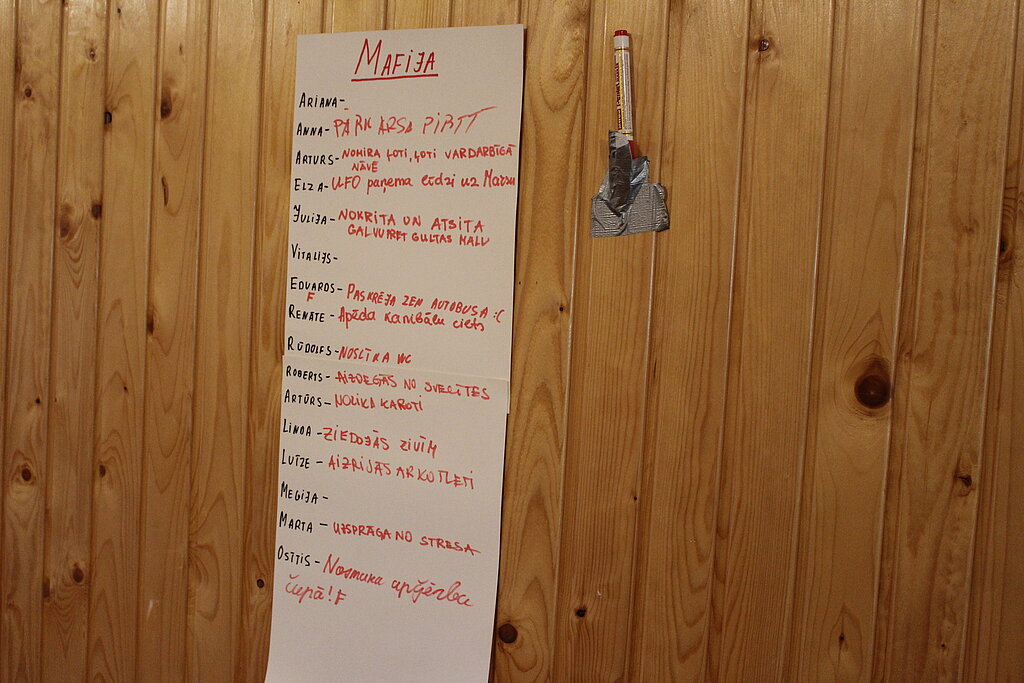 MAFIJA
ARIANA-
ANNA- PĀRKARSA PIRTĪ
ARTURS- NOMIRA ĻOTI, ĻOTI VARDARBĪGĀ
NĀVĒ
ELZA- UFO paņema līdzi uz Marsu
JULIJA- NOKRITA UN ATSITA
GALVU PRET GULTAS MALU
VITALIJS-
EDVARDS- PASKRĒJA ZEM AUTOBUSA :(
F
RENĀTE- Apēda kanibālu ciets
RŪDOLFS- NOSLĪKA WC
ROBERTS- AIZDEGĀS NO SVECĪTES
ARTŪRS- NOLIKA KAROTI
LINDA- ZIEDOJĀS ZIVĪM
LUĪZE- AIZRIJĀS AR KOTLETI
MEGIJA-
MARTA- UZSPRĀGA NO STRESA
OSĪTIS- Nosmaka apģērbu
čupā! F